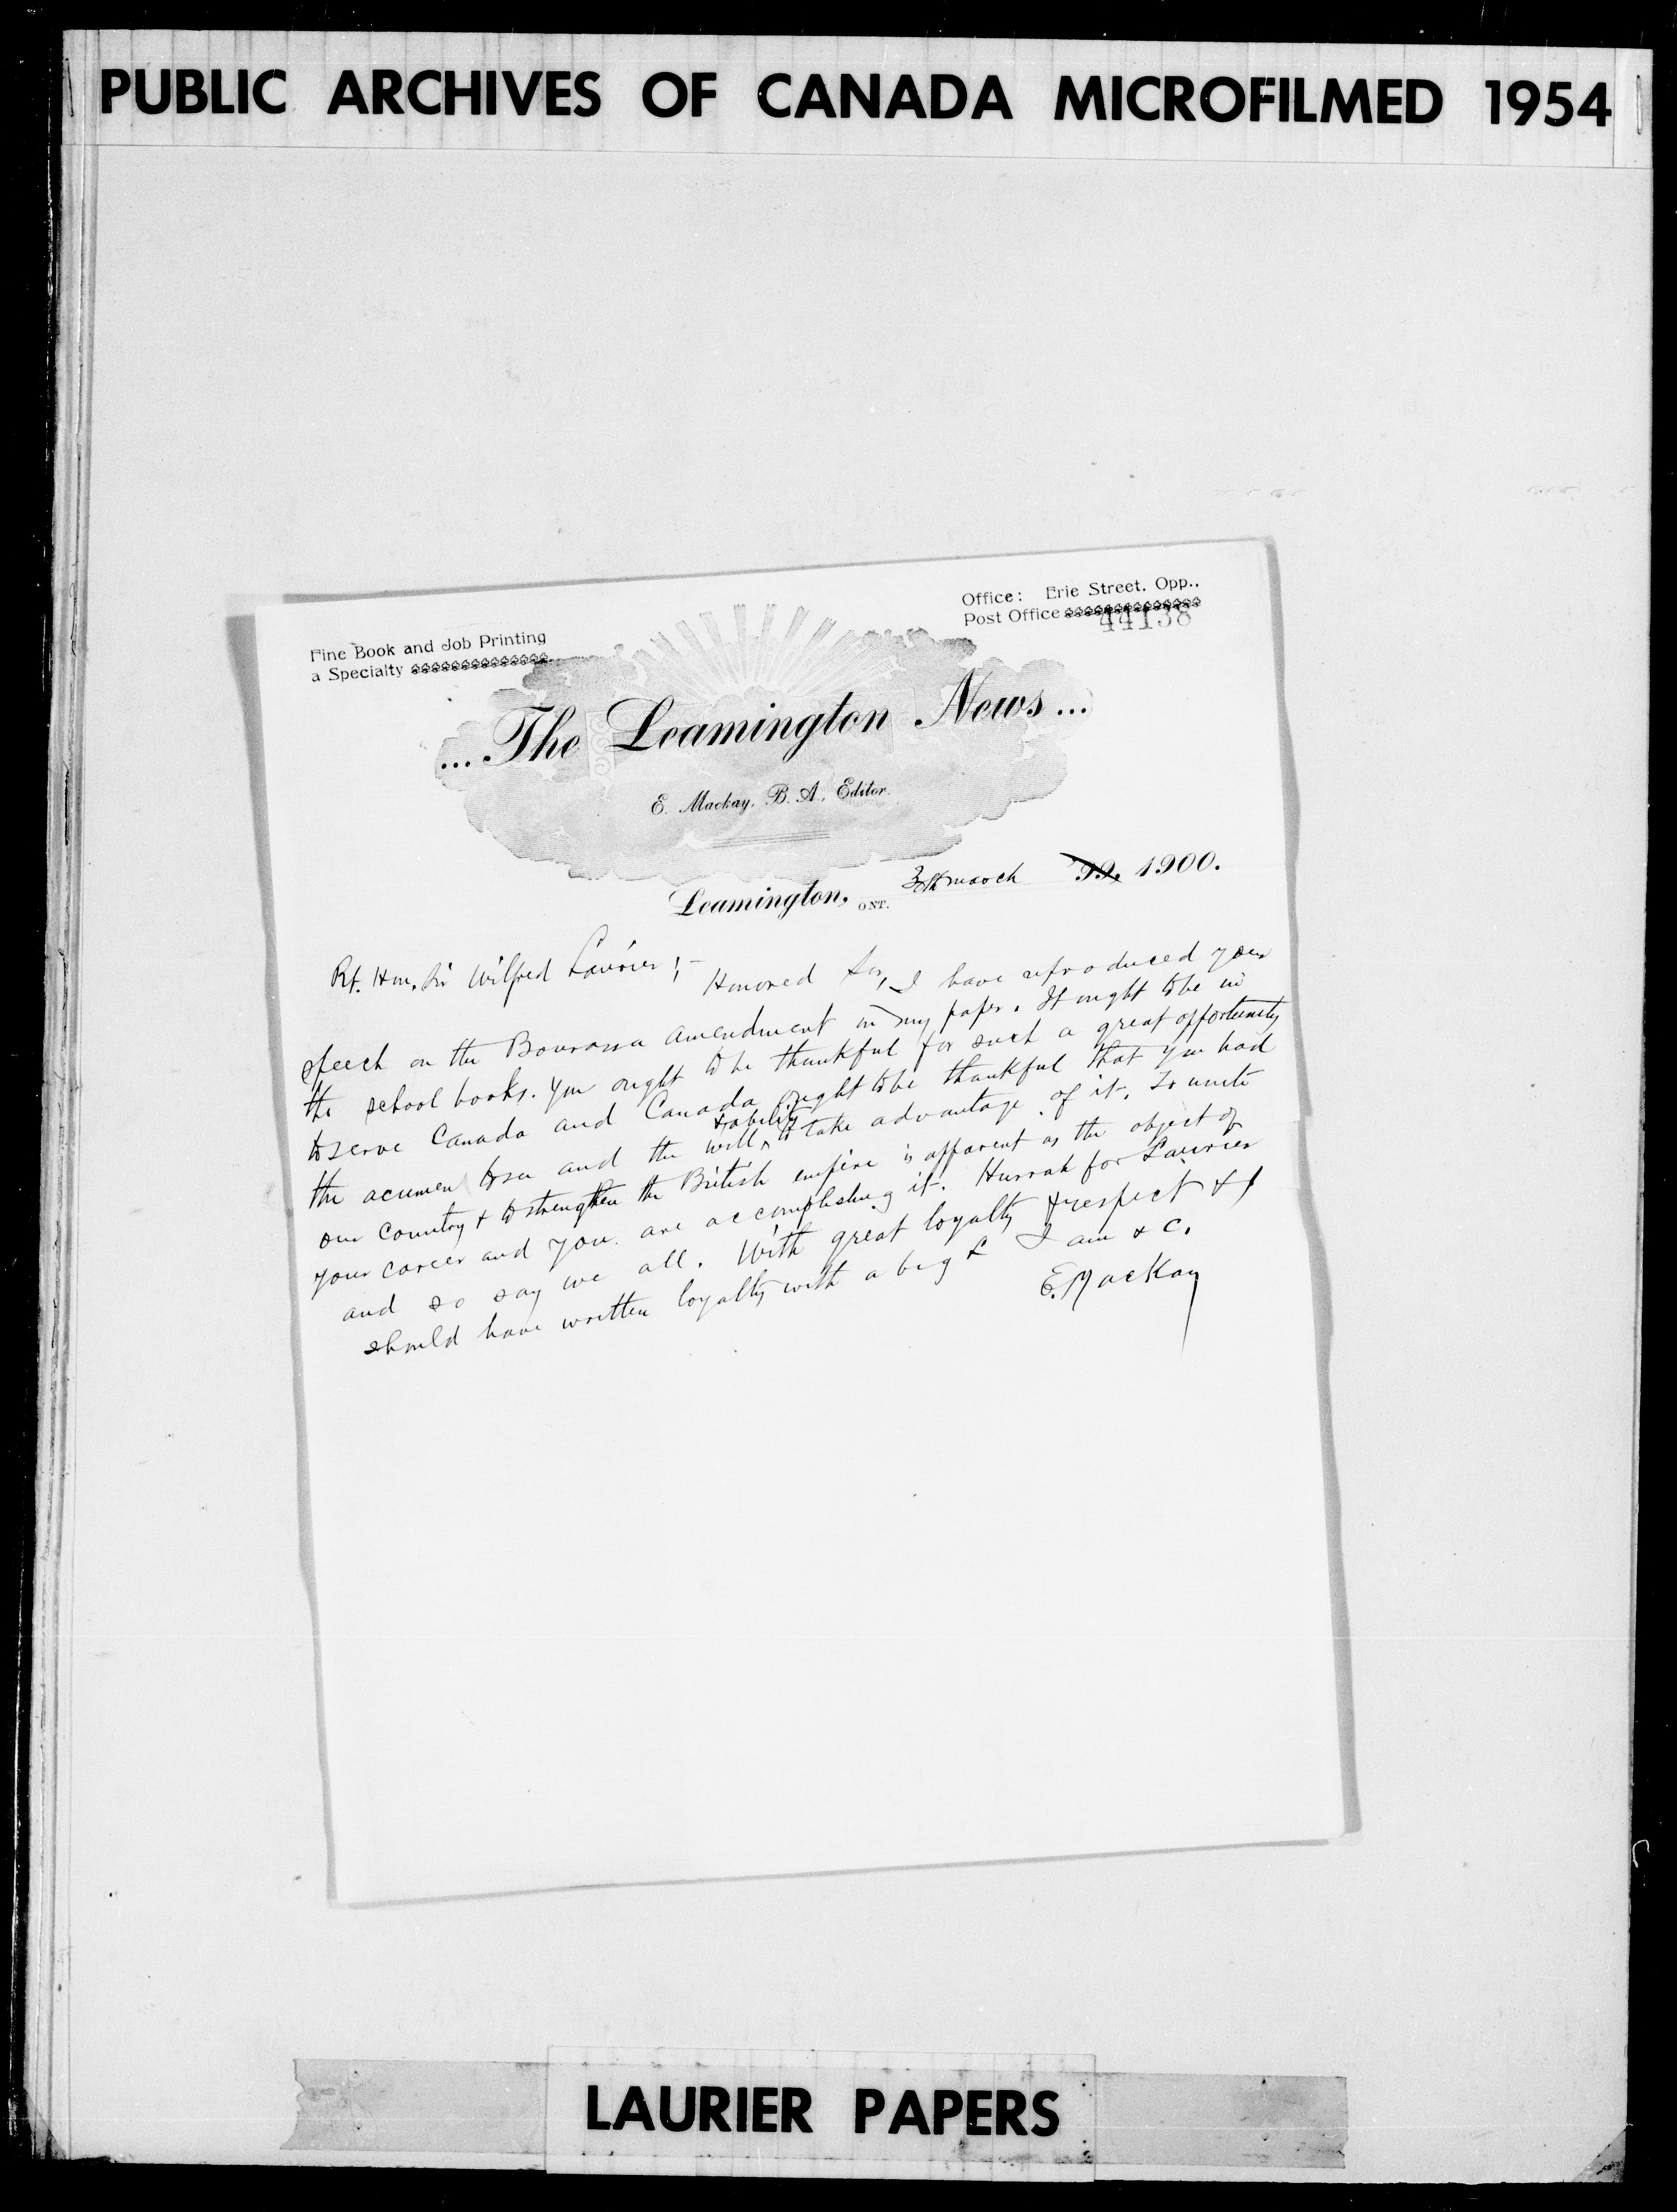 PUBLIC ARCHIVES OF CANADA MICROFILMED 1954
Office: Erie Street, Opp..
Post Office
44138
Fine Book and Job Printing
a Specialty
... The Leamington News ...
E. Mackay, B. A., Editor.
Leamington, ONT. March 99, 1900.
Rt. Hon. Sir Wilfred Laurier;-
Honored Sir, I have reproduced your
speech on the Bourassa amendment in my paper. It ought to be in
the school books. You ought to be thankful for such a great opportunity
to serve Canada and Canada ought to be thankful that you had
the acumen to see and the will & ability to take advantage of it. To unite
our country & to strengthen the British empire is apparent as the object of
your career and you are accomplishing it. Hurrah for Laurier
and so say we all. With great loyalty & respect & I
should have written loyalty with a big L I am &c.
E. MacKay
LAURIER PAPERS